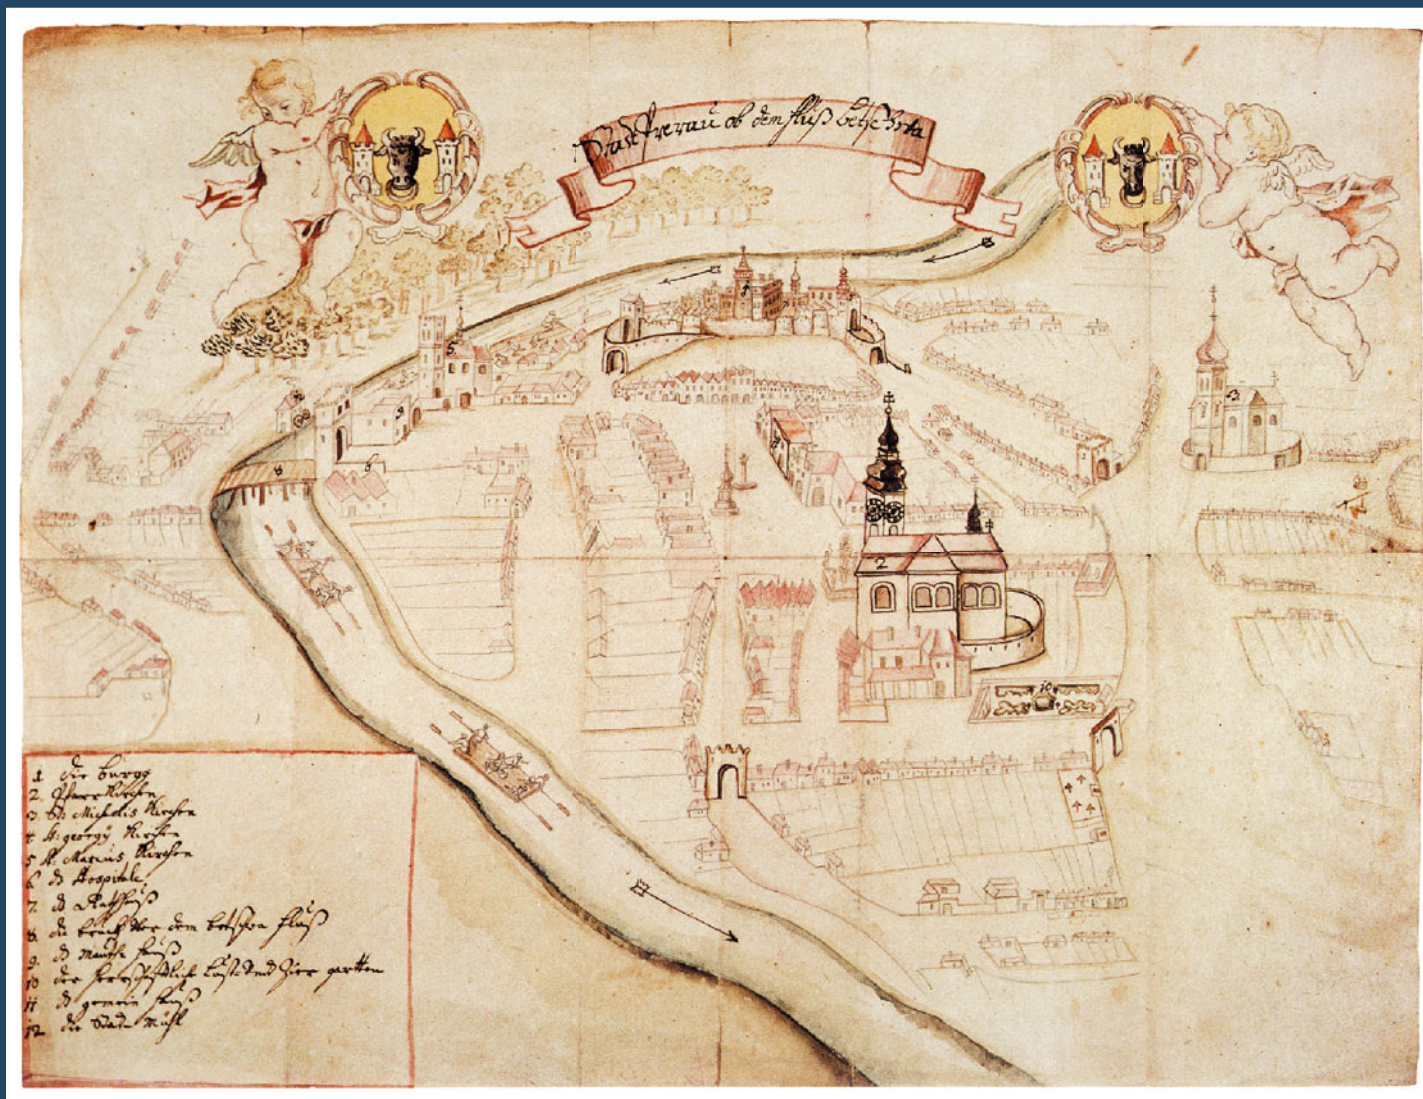 Stadt Prerau ob dem fluß betschva
1 die burgg
2. Pfarr Kirchen
3. St: Michaelis Kirchen
4 St: georgÿ Kirchen
5 St. Marcus Kirchen
6 ds Hospitale
7. ds Rathauß
8. die bruck Vber dem betschva fluß
9. ds Mauth hauß
10 der herrschafftliche Lust Vnd Zier gartten
11 ds gemein hauß
12 die Stad-Mühl
5
9
8
6
3
2
10